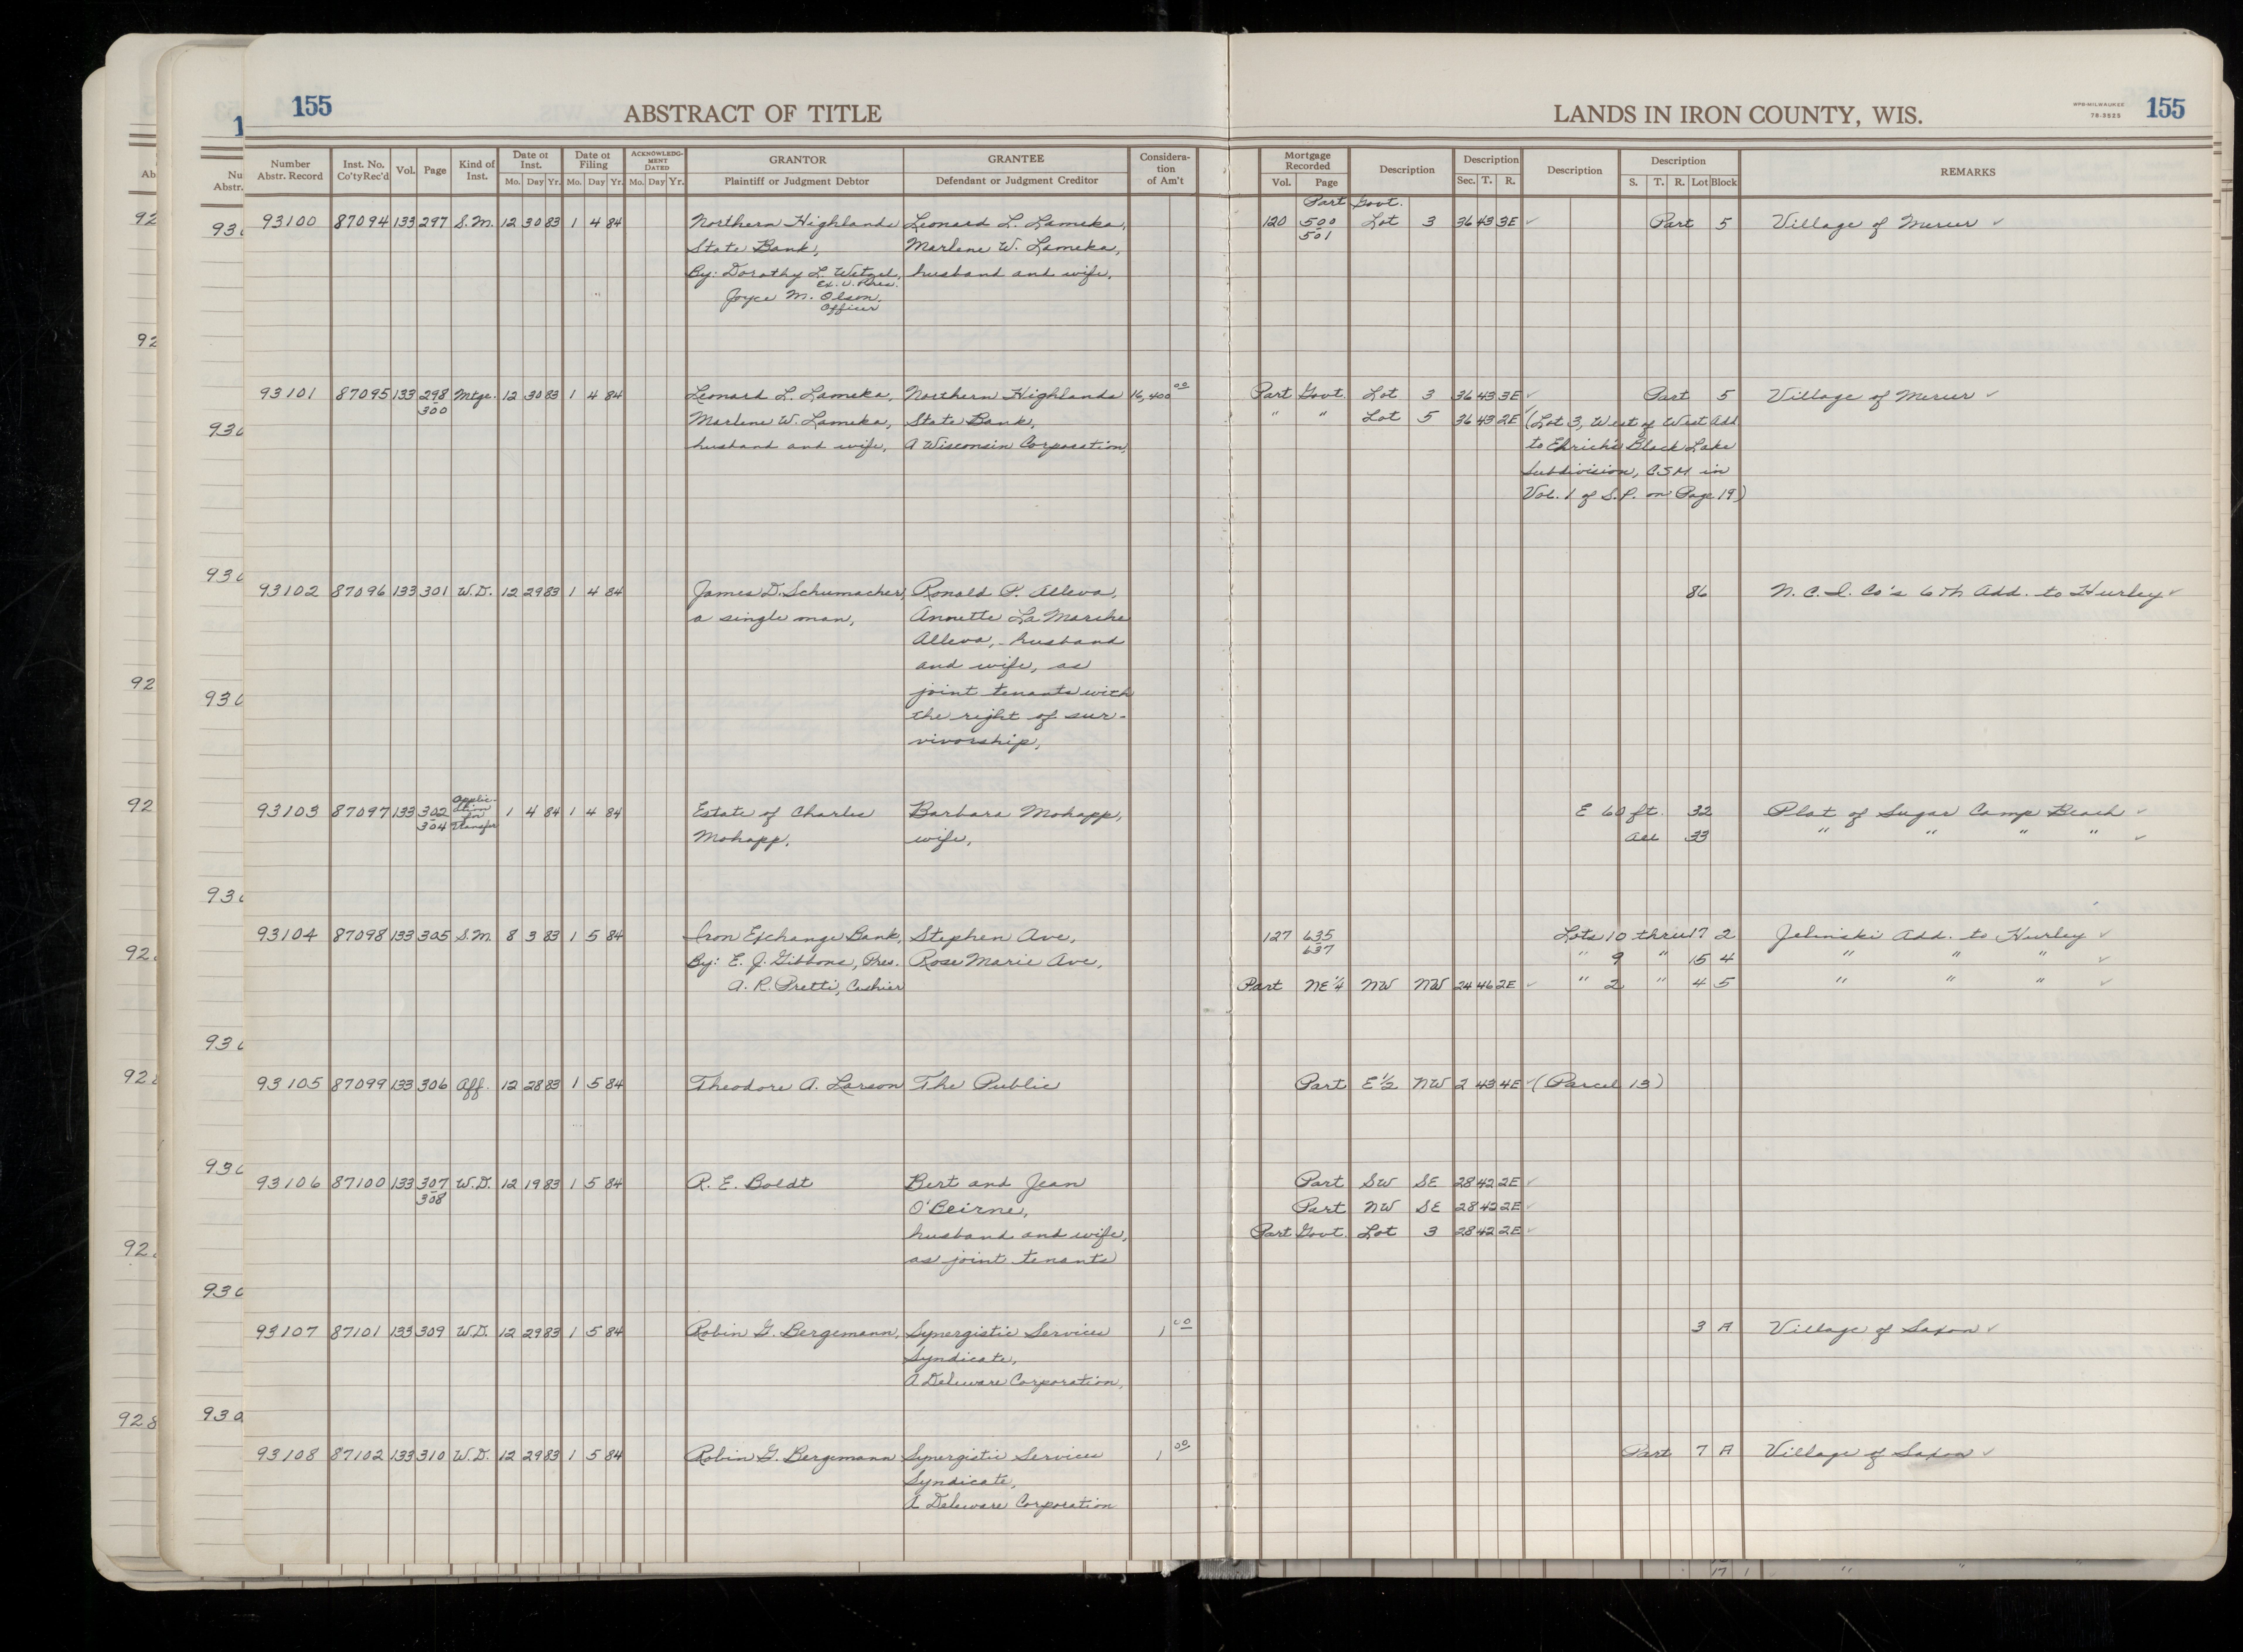 155 ABSTRACT OF TITLE LANDS IN IRON COUNTY, WIS. WPB-MILWAUKEE 155
Number Abstr. Record Inst. No. Co'ty Rec'd Vol. Page Kind of Inst. Date of Inst. Mo. Day Yr. Date of Filing Mo. Day Yr. ACKNOWLEDGMENT DATED Mo. Day Yr. GRANTOR Plaintiff or Judgment Debtor GRANTEE Defendant or Judgment Creditor Consideration of Am't Mortgage Recorded Vol. Page Description Description Sec. T. R. Description Description S. T. R. Lot Block REMARKS
Part Govt.
93100 87094 133 297 S.M. 12 30 83 1 4 84 Northern Highlands Leonard L. Lameka, 120 500 Lot 3 36 43 3E ✓ Part 5 Village of Mercer ✓
State Bank, Marlene W. Lameka, 501
By: Dorothy L. Wetzel, husband and wife,
Ex. V. Pres.
Joyce M. Olson,
Officer
93101 87095 133 298 Mtge. 12 30 83 1 4 84 Leonard L. Lameka, Northern Highlands 16,400 00 Part Govt. Lot 3 36 43 3E ✓ Part 5 Village of Mercer ✓
300
Marlene W. Lameka, State Bank, " " Lot 5 36 43 2E (Lot 3, West of West Add
husband and wife, A Wisconsin Corporation, to Ehrich's Black Lake
Subdivision, C.S.M. in
Vol. 1 of S.P. on Page 19)
93102 87096 133 301 W.D. 12 29 83 1 4 84 James D. Schumacher, Ronald P. Alleva, 86 N. C. I. Co's 6th Add. to Hurley ✓
a single man, Annette La Marche
Alleva, husband
and wife, as
joint tenants with
the right of sur-
vivorship,
93103 87097 133 302 Applic-ation for Transfer 1 4 84 1 4 84 Estate of Charles Barbara Mohapp, E 60 ft. 32 Plat of Sugar Camp Beach ✓
304 Mohapp, wife, All 33 " " " " ✓
93104 87098 133 305 S.M. 8 3 83 1 5 84 Iron Exchange Bank, Stephen Ave, 127 635 Lots 10 thru 17 2 Jelinski Add. to Hurley ✓
637
By: E. J. Gibbons, Pres. Rose Marie Ave, " 9 " 15 4 " " " ✓
A. R. Pretti, Cashier Part NE 1/4 NW NW 24 46 2E ✓ " 2 " 4 5 " " " ✓
93105 87099 133 306 Aff. 12 28 83 1 5 84 Theodore A. Larson The Public Part E 1/2 NW 2 43 4E ✓ (Parcel 13)
93106 87100 133 307 W.D. 12 19 83 1 5 84 R. E. Boldt Bert and Jean Part SW SE 28 42 2E ✓
308 O'Beirne, Part NW SE 28 42 2E ✓
husband and wife, Part Govt. Lot 3 28 42 2E ✓
as joint tenants
93107 87101 133 309 W.D. 12 29 83 1 5 84 Robin G. Bergemann, Synergistic Services 1 00 3 A Village of Saxon ✓
Syndicate,
A Deleware Corporation,
93108 87102 133 310 W.D. 12 29 83 1 5 84 Robin G. Bergemann Synergistic Services 1 00 Part 7 A Village of Saxon ✓
Syndicate,
A Deleware Corporation